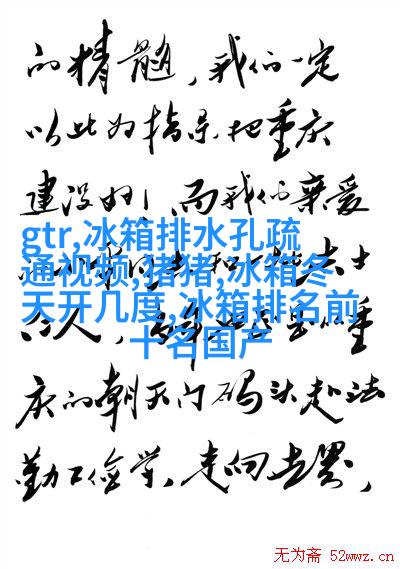 的精髓，我们一定
以此为指导把重庆
建设好！而我们亲爱
gtr,冰箱排水孔疏
通视频,猪猪,冰箱冬
天开几度,冰箱排名前
十名国产
士
人，重
庆的朝天门码头赴法
勤工俭学，走向世界，
无为斋 52wwz.cn